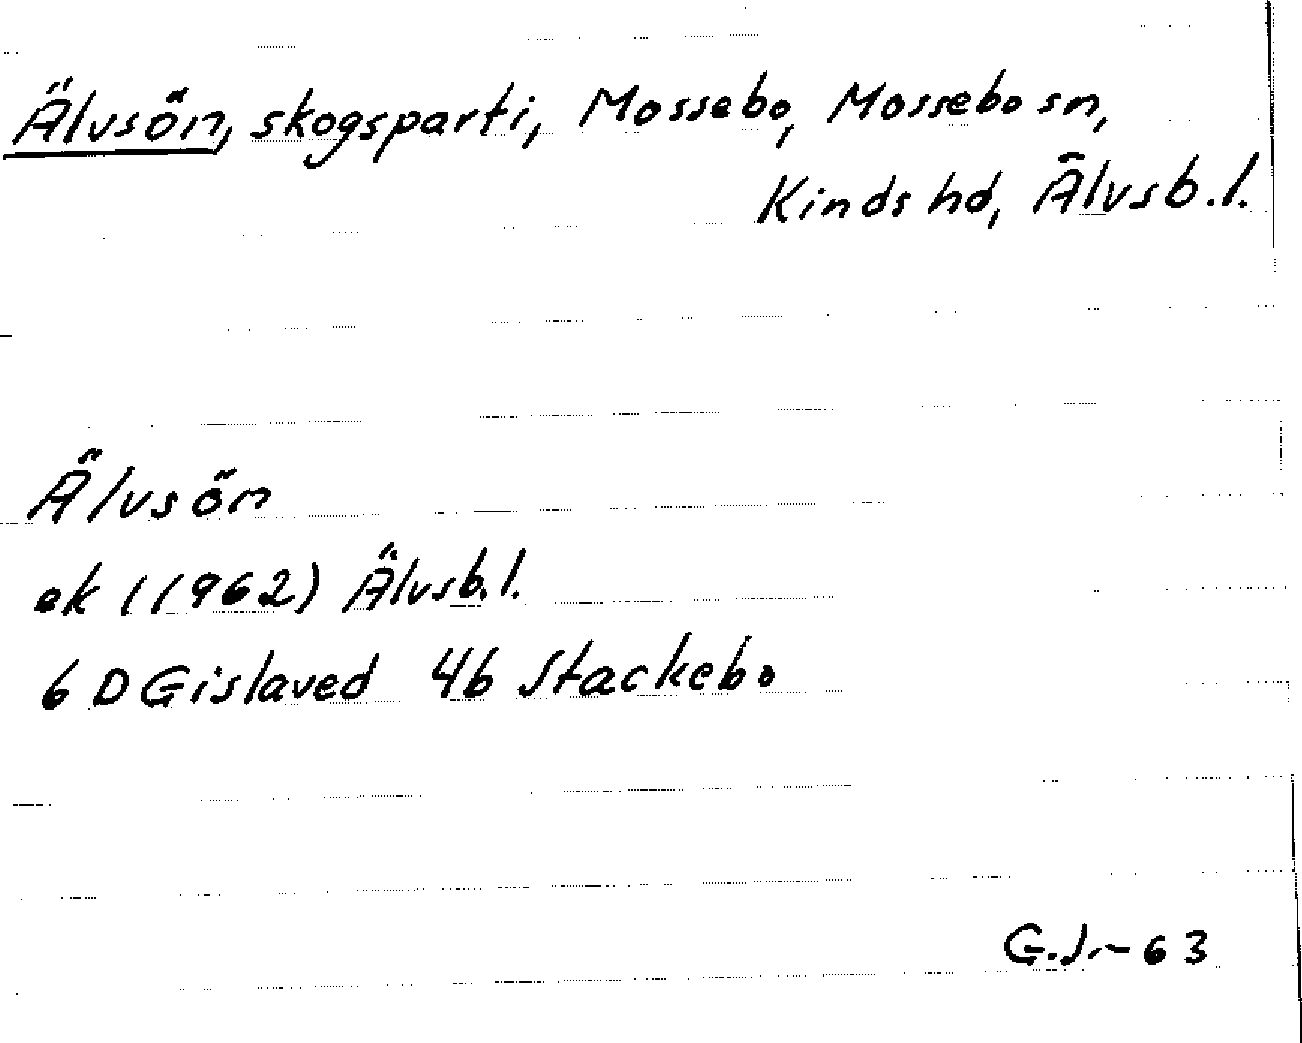 Älvsön, skogsparti, Mossebo, Mossebo sn,
Kinds hd, Älvsb.l.
Älvsön
ek (1962) Älvsb.l.
6 D Gislaved 4b Stackebo
G.J.-63